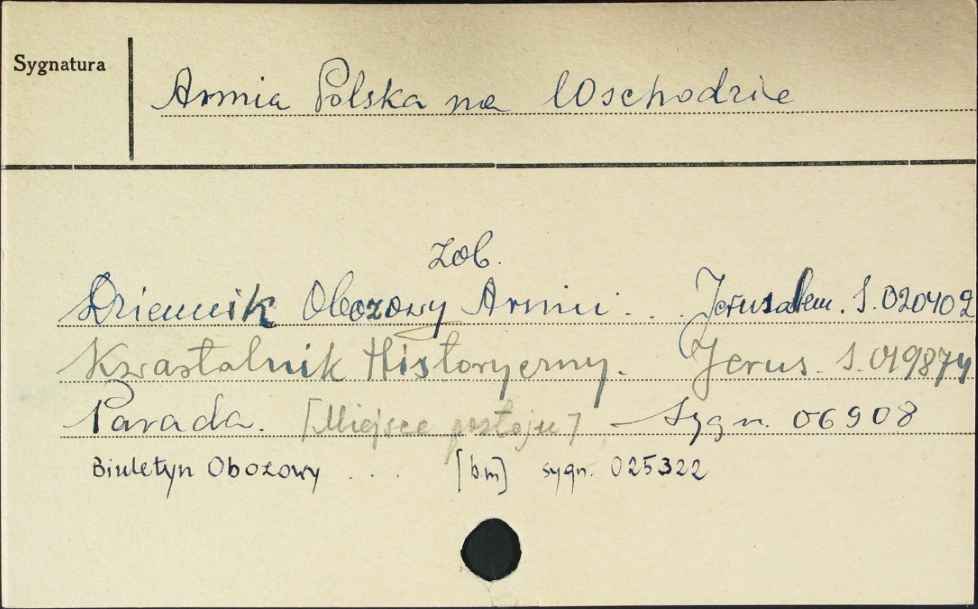 Sygnatura
Armia Polska na Wschodzie
zob.
Dziennik Obozowy Armii . . . Jerusalem. S. 020402
Kwartalnik Historyczny. Jerus. S. 019874
Parada. [Miejsce postoju] – Sygn. 06908
Biuletyn Obozowy . . . [bm] sygn. 025322